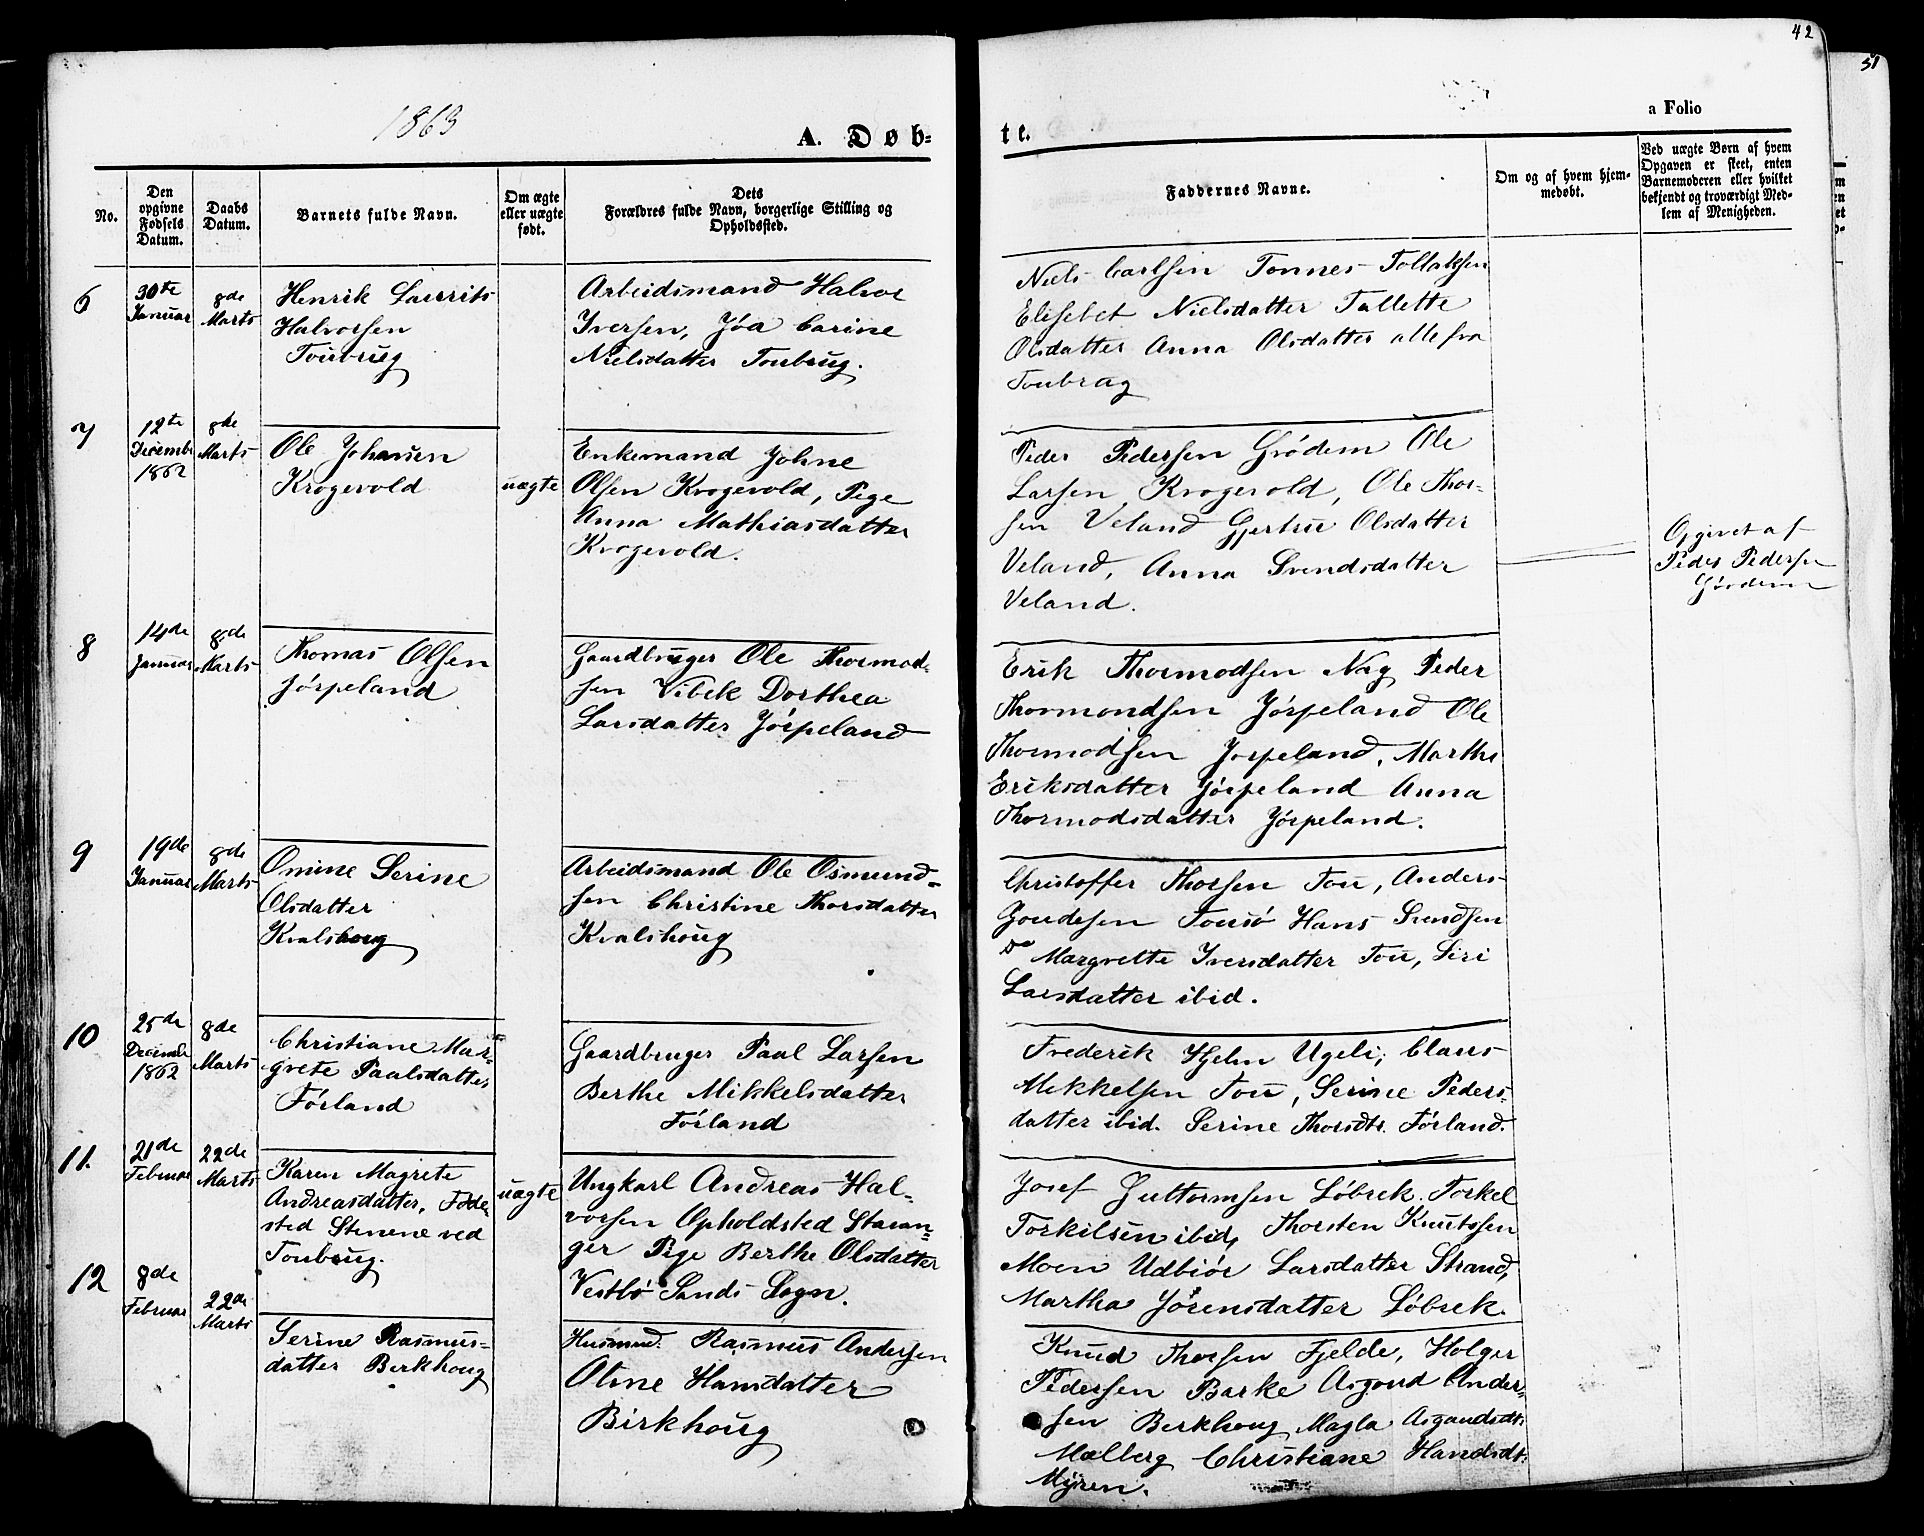 42
51
1863
A. Døb=
te.
a Folio
No.
Den
opgivne
Fødsels
Datum.
Daabs
Datum.
Barnets fulde Navn.
Om ægte
eller uægte
født.
Dets
Forældres fulde Navn, borgerlige Stilling og
Opholdssted.
Faddernes Navne.
Om og af hvem hjem-
medøbt.
Ved uægte Børn af hvem
Opgaven er skeet, enten
Barnemoderen eller hvilket
bekjendt og troværdigt Med-
lem af Menigheden.
6
30te
Januar
8de
Marts
Henrik Laurits
Halvorsen
Toubrug
Arbeidsmand Halvor
Iversen, Jóa Carine
Nielsdatter Toubrug.
Niels Carlsen Tonnes Tollaksen
Elisebet Nielsdatter Tallette
Olsdatter Anna Olsdatter alle fra
Toubrug
7
12te
Decembr
1862
8de
Marts
Ole Johnsen
Krogevold
uægte
Enkemand Johne
Olsen Krogevold, Pige
Anna Mathiasdatter
Krogevold.
Peder Pedersen Grødem Ole
Larsen Krogevold, Ole Thor-
sen Veland Gjertru Olsdatter
Veland, Anna Svendsdatter
Veland.
Opgivet af
Peder Pedersen
Grødem
8
14de
Januar
8de
Marts
Thomas Olsen
Jórpeland
Gaardbruger Ole Thormod-
sen Vibek Dorthea
Larsdatter Jórpeland
Erik Thormodsen Nag Peder
Thormondsen Jórpeland Ole
Thormodsen Jorpeland, Marthe
Eriksdatter Jórpeland Anna
Thormodsdatter Jórpeland.
9
19de
Januar
8de
Marts
Omine Serine
Olsdatter
Kvalshoug
Arbeidsmand Ole Osmund=
sen Christine Thorsdatter
Kvalshoug
Christoffer Thorsen Tou, Anders
Goudesen Tousø Hans Svendsen
Do Margrette Iversdatter Tou, Siri
Larsdatter ibid.
10
25de
Decembr
1862
8de
Marts
Christiane Mar-
grete Paalsdatter
Fórland
Gaardbruger Paal Larsen
Berthe Mikkelsdatter
Fórland
Frederik Hjelm Ugeli, Claus
Mekkelsen Tou, Serine Peders-
datter ibid. Serine Thorsdtr Fórland.
11.
21de
Februar
22de
Marts
Karen Magrete
Andreasdatter, Føde-
sted Stenene ved
Toubrug.
uægte
Ungkarl Andreas Hal-
vorsen Opholdsted Stavan=
ger Pige Berthe Olsdatter
Vestbø Sands Sogn.
Josef Guttormsen Løbrek. Torkel
Torkilsen ibid, Thorsten Knutssen
Moen Udbiór Larsdatter Strand,
Martha Jørensdatter Løbrek.
12
8de
Februar
22de
Marts
Serine Rasmus-
datter Berkhoug
Husmnd. Rasmus Andersen
Oline Hansdatter
Birkhoug
Knud Thorsen Fjelde, Holger
Pedersen Barke Asgoud Ander-
sen Berkhoug Magla Asgaudsdt:
Mælberg Christiane Handsdt:
Myren.